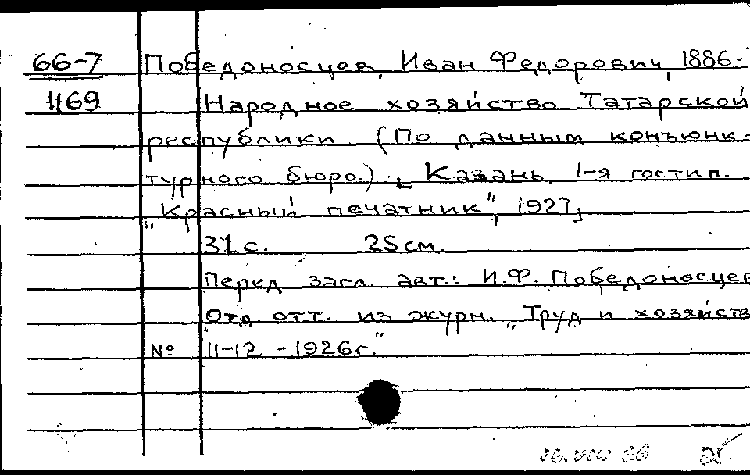 66-7 Победоносцев, Иван Федорович, 1886-
1169 Народное хозяйство Татарской
республики. (По данным конъюнк-
турного бюро.) [Казань, 1-я гостип.
„Красный печатник", 1927]
31 с. 25 см.
Перед загл. авт.: И.Ф. Победоносцев
Отд. отт. из журн. „Труд и хозяйств
№ 11-12 - 1926г."